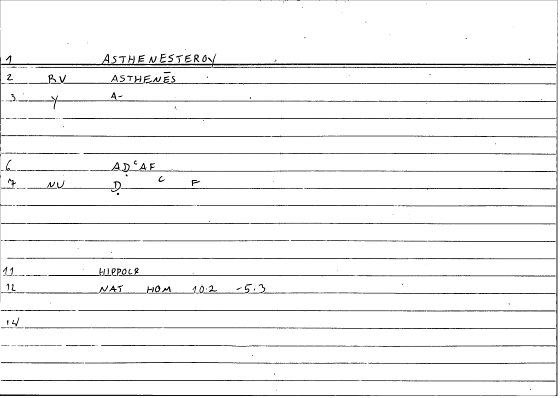 1 ASTHENESTEROY
2 RV ASTHENĒS
3 Y A-
6 AḌᶜAF
7 NU Ḍ C F
11 HIPPOCR
12 NAT HOM 10.2 -5.3
14